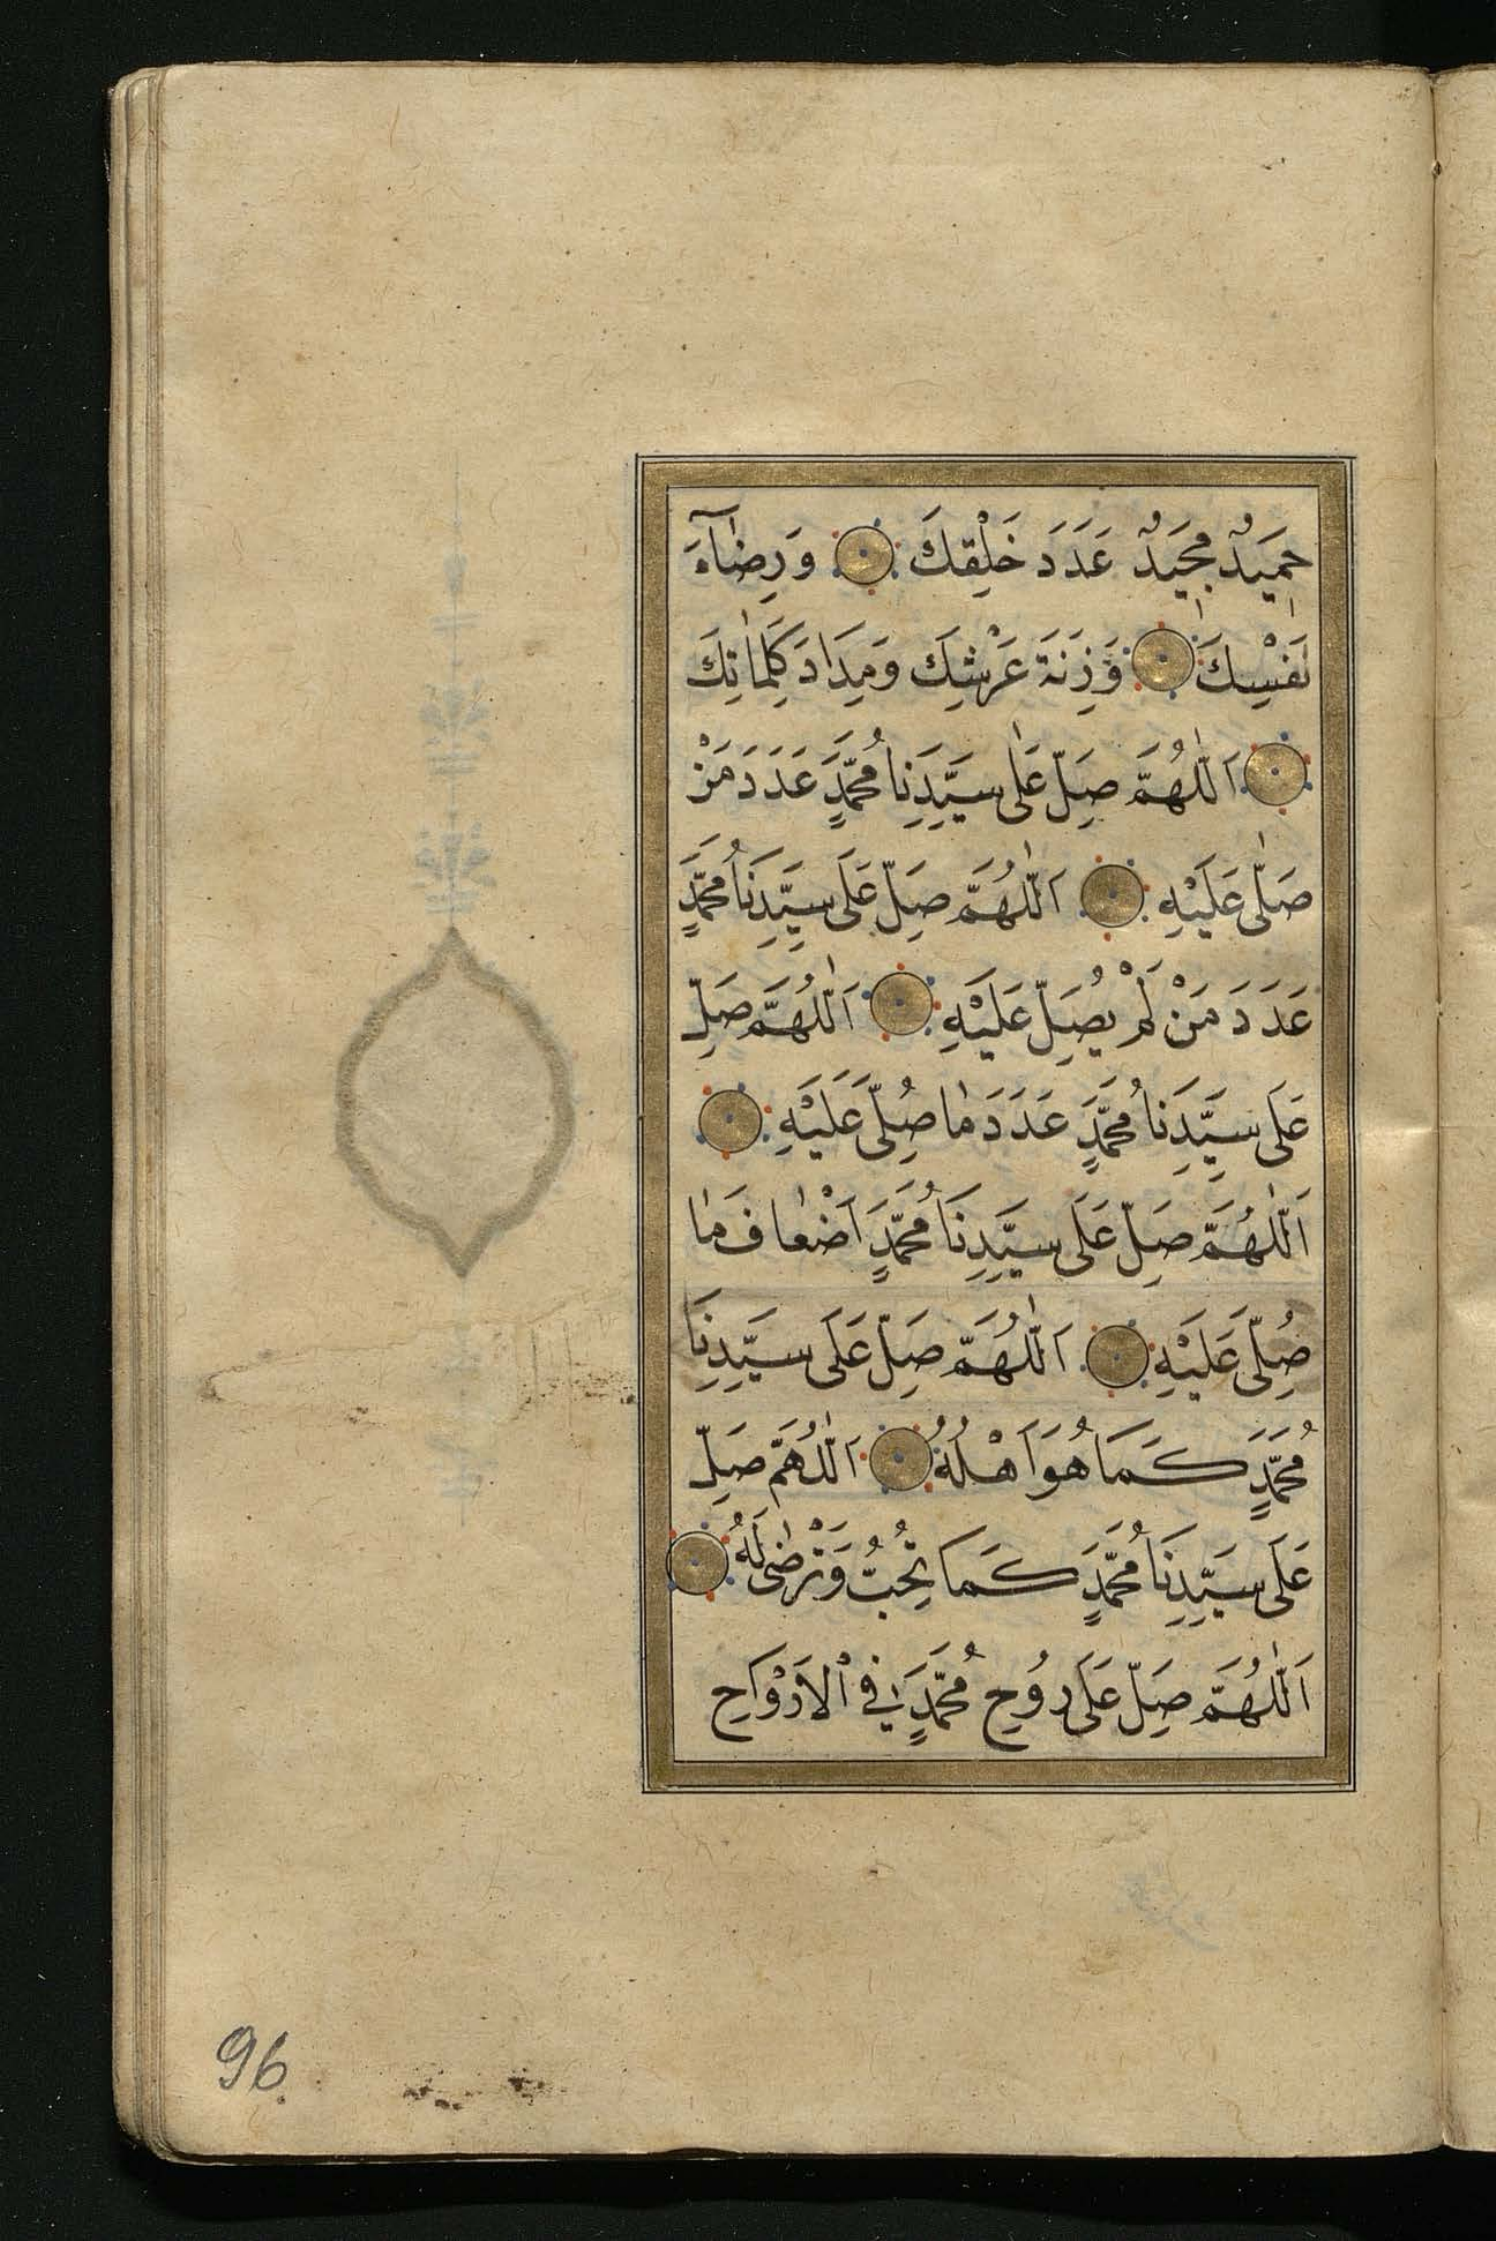 حَمِيدٌ مَجِيدٌ عَدَدَ خَلْقِكَ وَرِضَاءَ
نَفْسِكَ وَزِنَةَ عَرْشِكَ وَمِدَادَ كَلِمَاتِكَ
اَللّٰهُمَّ صَلِّ عَلٰى سَيِّدِنَا مُحَمَّدٍ عَدَدَ مَنْ
صَلّٰى عَلَيْهِ اَللّٰهُمَّ صَلِّ عَلَى سَيِّدِنَا مُحَمَّدٍ
عَدَدَ مَنْ لَمْ يُصَلِّ عَلَيْهِ اَللّٰهُمَّ صَلِّ
عَلَى سَيِّدِنَا مُحَمَّدٍ عَدَدَ مَا صُلِّىَ عَلَيْهِ
اَللّٰهُمَّ صَلِّ عَلَى سَيِّدِنَا مُحَمَّدٍ اَضْعَافَ مَا
صُلِّىَ عَلَيْهِ اَللّٰهُمَّ صَلِّ عَلَى سَيِّدِنَا
مُحَمَّدٍ كَمَا هُوَ اَهْلُهُ اَللّٰهُمَّ صَلِّ
عَلَى سَيِّدِنَا مُحَمَّدٍ كَمَا تُحِبُّ وَتَرْضٰى لَهُ
اَللّٰهُمَّ صَلِّ عَلَى رُوحِ مُحَمَّدٍ فِى الْاَرْوَاحِ
96